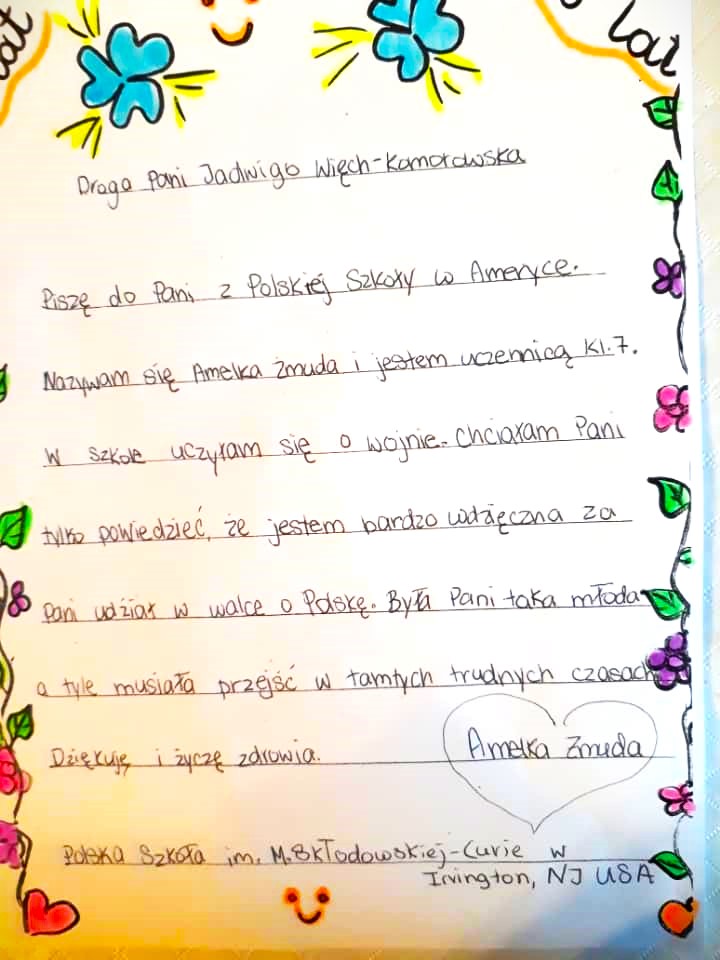 lat
lat
Droga Pani Jadwigo Więch-Komorowska
Piszę do Pani z Polskiej Szkoły w Ameryce.
Nazywam się Amelka Żmuda i jestem uczennicą kl.7.
W szkole uczyłam się o wojnie. Chciałam Pani
tylko powiedzieć, że jestem bardzo wdzięczna za
Pani udział w walce o Polskę. Była Pani taka młoda
a tyle musiała przejść w tamtych trudnych czasach
Dziękuję i życzę zdrowia. Amelka Żmuda
Polska Szkoła im. M. Skłodowskiej-Curie w
Irvington, NJ USA